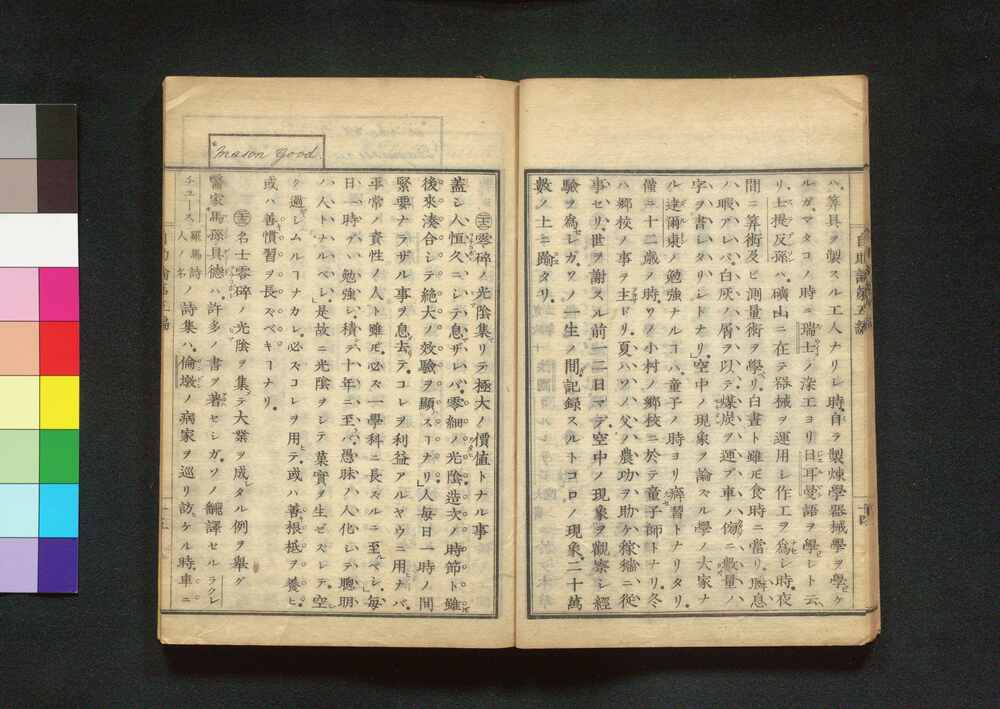 ハ、算具ヲ製スル工人ナリシ時、自ラ製煉學器械學ヲ學ビケ
ルガ、マタコノ時ニ瑞士ノ染工ヨリ日耳曼語ヲ學ビシト云、
リ、士提反孫ハ、礦山ニ在テ器械ヲ運用シ作工ヲ爲シ時、夜
間ニ算術及ビ測量術ヲ學ビ、白晝ト雖モ食時ニ當リ、勝息
ハ暇アレバ、白灰ノ屑ヲ以テ、煤炭ヲ運ブ車ノ傍ニ數量ノ
字ヲ書シタリシトナリ、空中ノ現象ヲ論ズル學ノ大家ナ
ル達爾東ノ勉強ナルコハ、童子ノ時ヨリ癖習トナリタリ、
僅ニ十二歲ノ時、ソノ小村ノ鄉校ニ於テ童子師トナリ、冬
ハ鄉校ノ事ヲ主ドリ、夏ハソノ父ノ農功ヲ助ケ稼穡ニ從
事セリ、世ヲ謝スル前一二日マデ、空中ノ現象ヲ觀察シ經
驗ヲ爲シガ、ソノ一生ノ間記録スルトコロノ現象、二十萬
數ノ上ニ踰タリ、
零碎ノ光陰集リテ極大ノ價値トナル事
蓋シ人恒久ニシテ息ザレバ、零細ノ光陰、造次ノ時節ト雖
後來湊合シテ絕大ノ效驗ヲ顯スーナリ、人每日一時ノ間
緊要ナラザル事ヲ息去テ、コレヲ利益アルヤウニ用ナバ、
平常ノ資性ノ人ト雖モ、必ズ一學科ニ長ズルニ至ベシ、每
日一時ヅヽ勉強シ、積デ十年ニ至バ、愚昧ノ人化シテ聰明
ノ人トナルベシ、是故ニ光陰ヲシテ菓實ヲ生ゼズシテ、空
ク過シムルーナカレ、必ズコレヲ用テ、或ハ善根抵ヲ養ヒ、
或ハ善慣習ヲ長ズベキコーナリ、
名士零碎ノ光陰ヲ集テ大業ヲ成シタル例ヲ擧グ
醫家馬孫具德ハ、許多ノ書ヲ著セシガ、ソノ飜譯セルラクレ
チユース 羅馬詩人ノ名ノ詩集ハ、倫墩ノ病家ヲ巡リ訪ケル時、車ニ
"Mason Good.